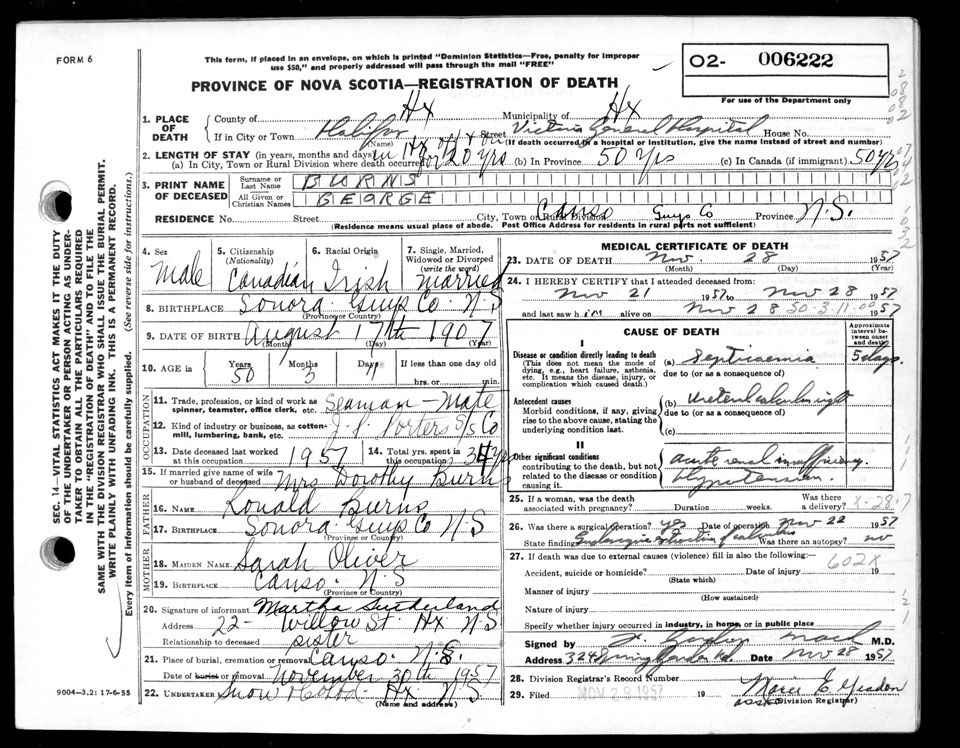 FORM 6
This form, if placed in an envelope, on which is printed "Dominion Statistics—Free, penalty for improper
use $50," and properly addressed will pass through the mail "FREE"
PROVINCE OF NOVA SCOTIA—REGISTRATION OF DEATH
O2- 006222
For use of the Department only
1. PLACE OF DEATH
County of Hx Municipality of Hx
If in City or Town Halifax Street Victoria General Hospital House No.
(Name) (If death occurred in a hospital or institution, give the name instead of street and number)
2. LENGTH OF STAY (in years, months and days)
(a) In City, Town or Rural Division where death occurred for 20 yrs (b) In Province 50 Yrs (c) In Canada (if immigrant) 50 yrs
3. PRINT NAME OF DECEASED
Surname or Last Name BURNS
All Given or Christian Names GEORGE
RESIDENCE No. Street City, Town or Rural Division Canso Guys Co Province N.S.
(Residence means usual place of abode. Post Office Address for residents in rural parts not sufficient)
4. Sex Male
5. Citizenship (Nationality) Canadian
6. Racial Origin Irish
7. Single, Married, Widowed or Divorped (write the word) married
8. BIRTHPLACE Sonora Guys Co. N.S
(Province or Country)
9. DATE OF BIRTH August 17th 1907
(Month) (Day) (Year)
10. AGE in Years 50 Months 3 Days 11 If less than one day old
hrs. or min.
OCCUPATION
11. Trade, profession, or kind of work as spinner, teamster, office clerk, etc. Seaman - Mate
12. Kind of industry or business, as cotton-mill, lumbering, bank, etc. J.P. Porters S/S Co
13. Date deceased last worked at this occupation 1957
14. Total yrs. spent in this occupation 34 yrs
15. If married give name of wife or husband of deceased Mrs Dorothy Burns
FATHER
16. NAME Ronald Burns
17. BIRTHPLACE Sonora Guys Co N.S
(Province or Country)
MOTHER
18. MAIDEN NAME Sarah Oliver
19. BIRTHPLACE Canso. N.S
(Province or Country)
20. Signature of informant Martha Sutherland
Address 22- Willow St. Hx N.S
Relationship to deceased sister
21. Place of burial, cremation or removal Canso. N.S.
Date of burial or removal November 30th 1957
22. UNDERTAKER Snow Hx N.S
(Name and address)
9004—3.2: 17-6-55
MEDICAL CERTIFICATE OF DEATH
23. DATE OF DEATH Nov. 28 1957
(Month) (Day) (Year)
24. I HEREBY CERTIFY that I attended deceased from:
Nov 21 1957 to Nov 28 1957
and last saw him alive on Nov 28 1957
CAUSE OF DEATH
Approximate interval between onset and death
I
Disease or condition directly leading to death
(This does not mean the mode of dying, e.g., heart failure, asthenia, etc. It means the disease, injury, or complication which caused death.)
(a) Septicaemia 5 days
due to (or as a consequence of)
Antecedent causes
Morbid conditions, if any, giving rise to the above cause, stating the underlying condition last.
(b) Ureteral calculus right
due to (or as a consequence of)
(c)
II
Other significant conditions
contributing to the death, but not related to the disease or condition causing it.
acute renal insufficiency.
Hypotension.
25. If a woman, was the death associated with pregnancy? Duration weeks. Was there a delivery?
26. Was there a surgical operation? yes Date of operation Nov 22 1957
State finding Was there an autopsy? no
27. If death was due to external causes (violence) fill in also the following:—
602X
Accident, suicide or homicide? Date of injury 19
(State which)
Manner of injury
(How sustained)
Nature of injury
Specify whether injury occurred in industry, in home, or in public place
Signed by M.D.
Address 324 Spring Garden Rd. Date Nov 28 1957
28. Division Registrar's Record Number
29. Filed NOV 29 1957 19
Division Registrar)
SEC. 14—VITAL STATISTICS ACT MAKES IT THE DUTY
OF THE UNDERTAKER OR PERSON ACTING AS UNDER-
TAKER TO OBTAIN ALL THE PARTICULARS REQUIRED
IN THE "REGISTRATION OF DEATH" AND TO FILE THE
SAME WITH THE DIVISION REGISTRAR WHO SHALL ISSUE THE BURIAL PERMIT.
WRITE PLAINLY WITH UNFADING INK. THIS IS A PERMANENT RECORD.
Every item of information should be carefully supplied. (See reverse side for instructions.)